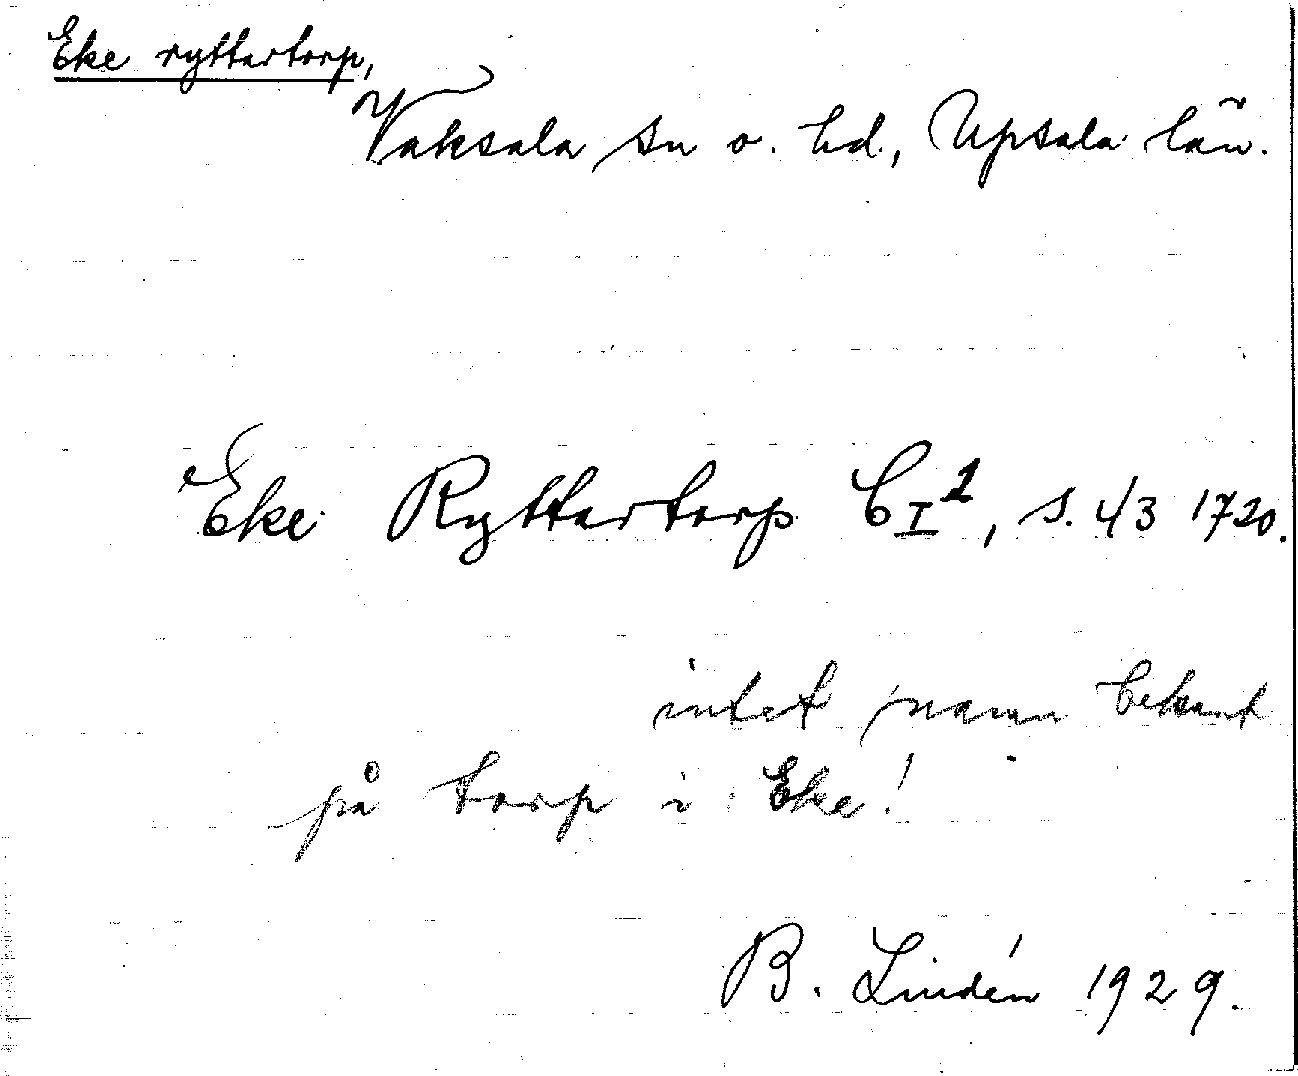 Eke ryttartorp,
Vaksala sn o. hd., Upsala län.
Eke Ryttartorp C I 1, s. 43 1720.
intet namn bekant
på torp i Eke!
B. Lindén 1929.